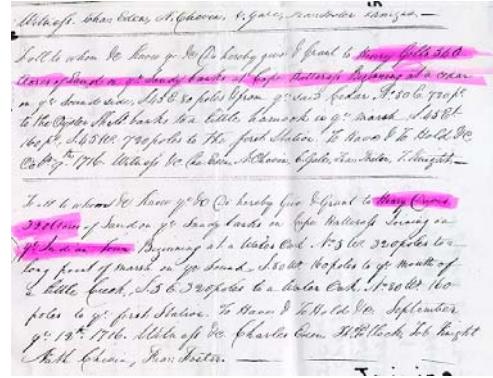 Witness Chas Eden, N. Chevin, C. Gale, Fran Foster T. Knight.
To all to whom &c Know ye &c Do hereby give & Grant to Henry Gibbs 360
Acres of Land on ye Sandy banks at Cape Hatteras Beginning at a Cedar
on ye Sound side, S45 E 80 poles from ye said Cedar N. 50 E. 720 po
to the Oyster Shell banks to a little hamock in ye marsh, S45 Et
160 po, S.45 Wt. 720 poles to the first Station. To Have & To Hold &c
9th 1716. Witness &c Cha Eden, N. Chevin, C. Gale, Fran Foster, T. Knight.
To all to whom &c Know ye &c Do hereby Give & Grant to Henry
320 Acres of Land on ye Sandy banks on Cape Hatteras Joining on
ye Indian Town Beginning at a Water Oak, No 5 Wt. 320 poles to a
long point of marsh on ye Sound, S.80 Wt. 160 poles to ye mouth of
a little Creek, S.5 E. 320 poles to a Water Oak, No 80 Et. 160
poles to ye first Station. To Have & To Hold &c. September
ye 12th 1716. Witness &c Charles Eden Th. Pollock, Tob Knight
Nath Chevin, Fran Foster.